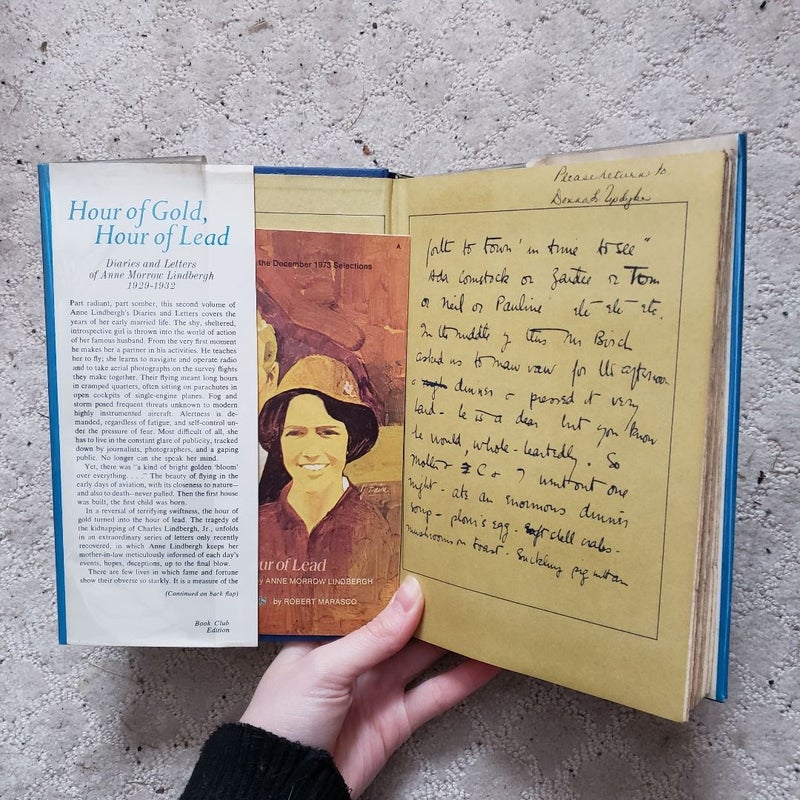 Hour of Gold,
Hour of Lead
Diaries and Letters
of Anne Morrow Lindbergh
1929-1932
Part radiant, part somber, this second volume of
Anne Lindbergh's Diaries and Letters covers the
years of her early married life. The shy, sheltered,
introspective girl is thrown into the world of action
of her famous husband. From the very first moment
he makes her a partner in his activities. He teaches
her to fly; she learns to navigate and operate radio
and to take aerial photographs on the survey flights
they make together. Their flying meant long hours
in cramped quarters, often sitting on parachutes in
open cockpits of single-engine planes. Fog and
storm posed frequent threats unknown to modern
highly instrumented aircraft. Alertness is de-
manded, regardless of fatigue, and self-control un-
der the pressure of fear. Most difficult of all, she
has to live in the constant glare of publicity, tracked
down by journalists, photographers, and a gaping
public. No longer can she speak her mind.
Yet, there was "a kind of bright golden 'bloom'
over everything. . . ." The beauty of flying in the
early days of aviation, with its closeness to nature—
and also to death—never palled. Then the first house
was built, the first child was born.
In a reversal of terrifying swiftness, the hour of
gold turned into the hour of lead. The tragedy of
the kidnapping of Charles Lindbergh, Jr., unfolds
in an extraordinary series of letters only recently
recovered, in which Anne Lindbergh keeps her
mother-in-law meticulously informed of each day's
events, hopes, deceptions, up to the final blow.
There are few lives in which fame and fortune
show their obverse so starkly. It is a measure of the
(Continued on back flap)
Book Club
Edition
A
the December 1973 Selections
our of Lead
y ANNE MORROW LINDBERGH
by ROBERT MARASCO
Please return to
Donna L. Updyke
forth to town' in time to see"
Ada Comstock or or Tom
or Neil or Pauline etc etc etc.
In the middle of this Mr Bisch
asked us to maw vaw for the afternoon
dinner & pressed it very
hard - he is a dear but you know
he would, whole-heartedly. So
mother C & I went out one
night - ate an enormous dinner
soup - plover's egg - soft shell crabs -
mushrooms on toast - Suckling pig with an